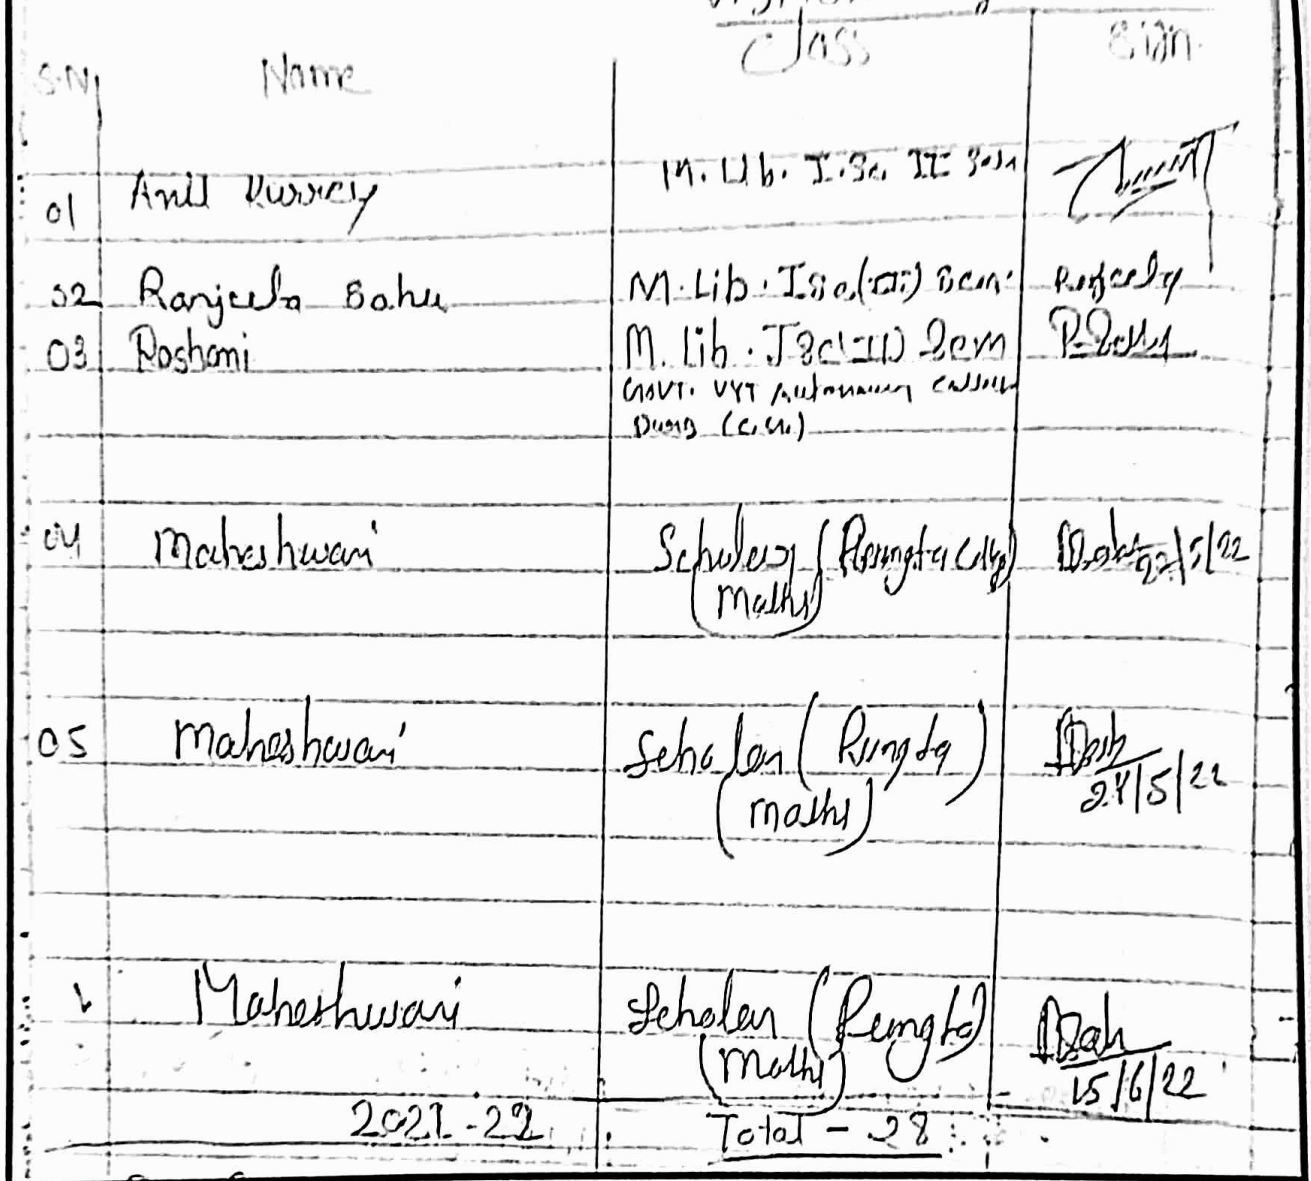 S.N Name Class Sign.
01 Anil Kurrey M. Lib. I.Sc. II Sem
02 Ranjeeta Sahu M. Lib. I Sc. (II) Sem.
03 Roshani M. Lib. I Sc (II) Sem
Govt. VYT Autonomous College
Durg (C.G.)
04 Maheshwari Scholar (Rungta Clg) 22/5/22
(Maths)
05 Maheshwari Scholar (Rungta)
(Maths) 24/5/22
1 Maheshwari Scholar (Rungta)
(Maths) 15/6/22
2021-22 Total - 28